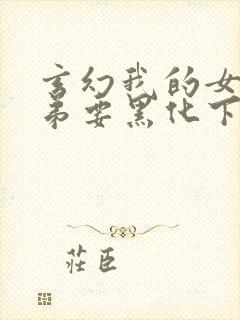 玄幻我的女
弟要黑化下
莊臣